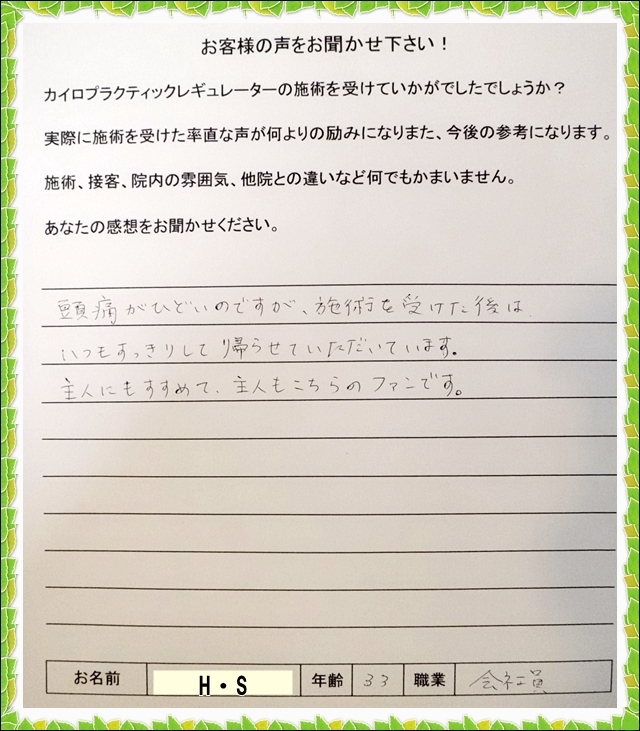 お客様の声をお聞かせ下さい！
カイロプラクティックレギュレーターの施術を受けていかがでしたでしょうか？
実際に施術を受けた率直な声が何よりの励みになりまた、今後の参考になります。
施術、接客、院内の雰囲気、他院との違いなど何でもかまいません。
あなたの感想をお聞かせください。
頭痛がひどいのですが、施術を受けた後は
いつもすっきりして帰らせていただいています。
主人にもすすめて、主人もこちらのファンです。
お名前 H・S 年齢 33 職業 会社員